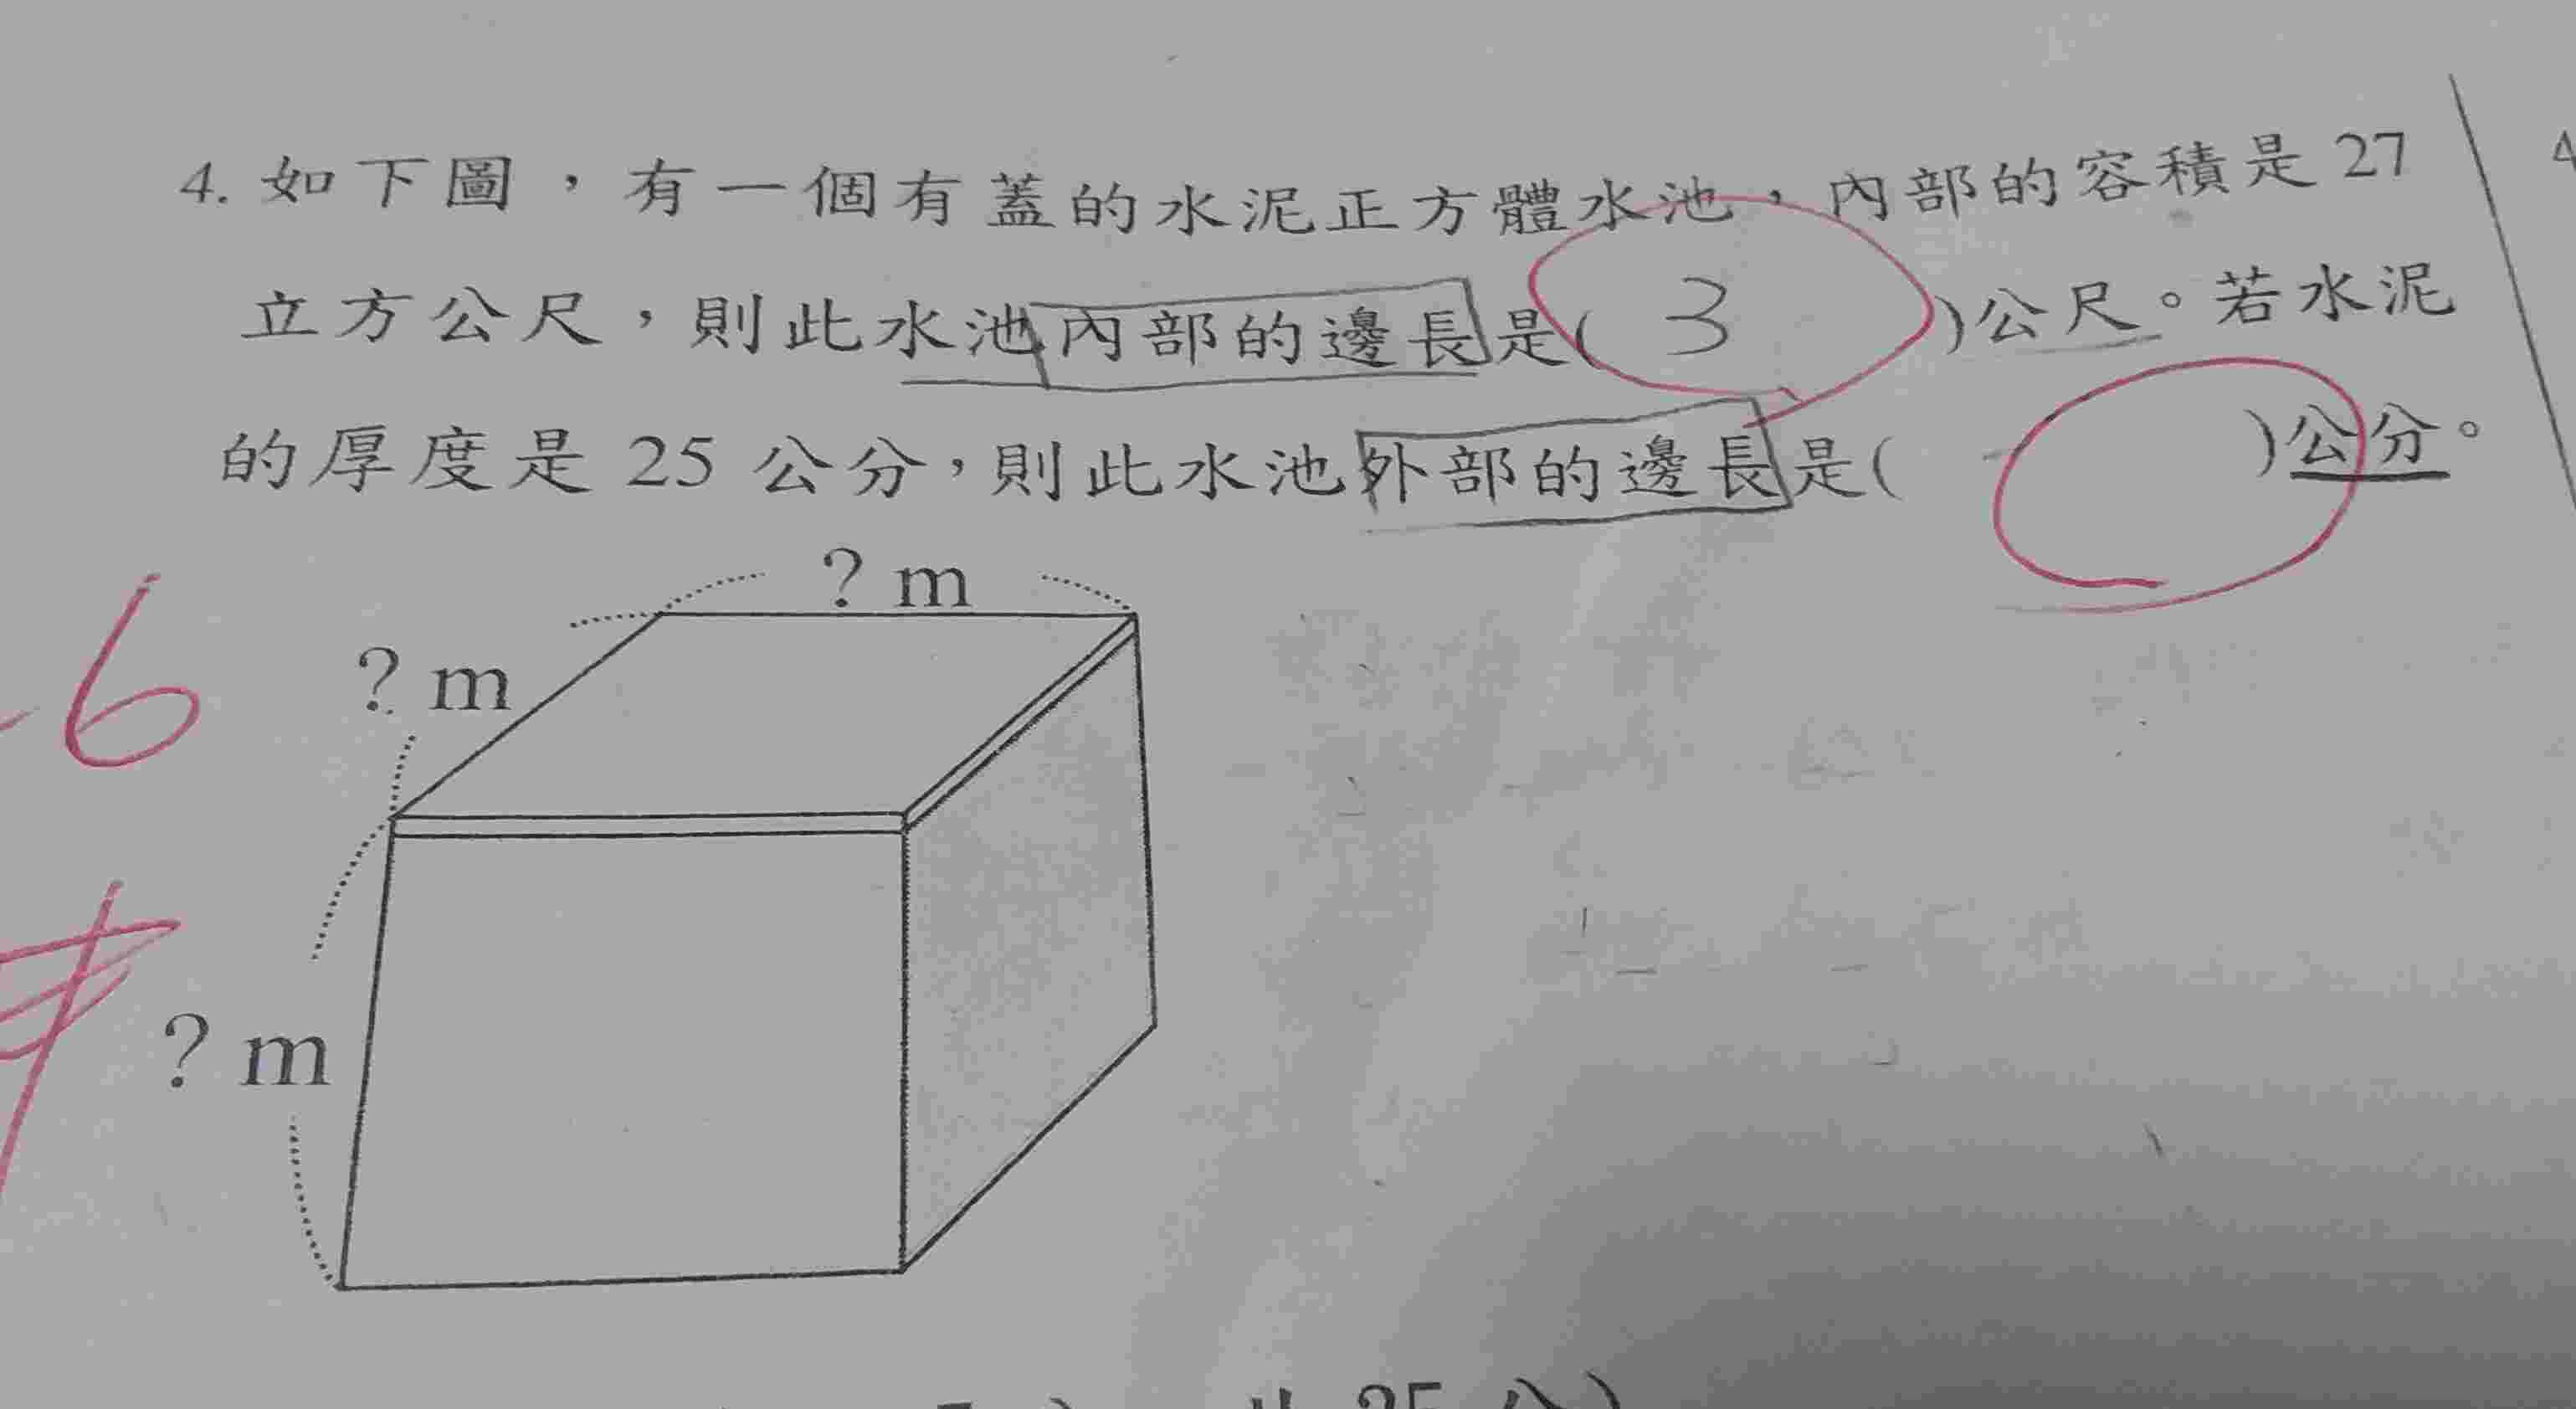 4. 如下圖，有一個有蓋的水泥正方體水池，內部的容積是 27
立方公尺，則此水池內部的邊長是( 3 )公尺。若水泥
的厚度是 25 公分，則此水池外部的邊長是( )公分。
? m
? m
-6
? m